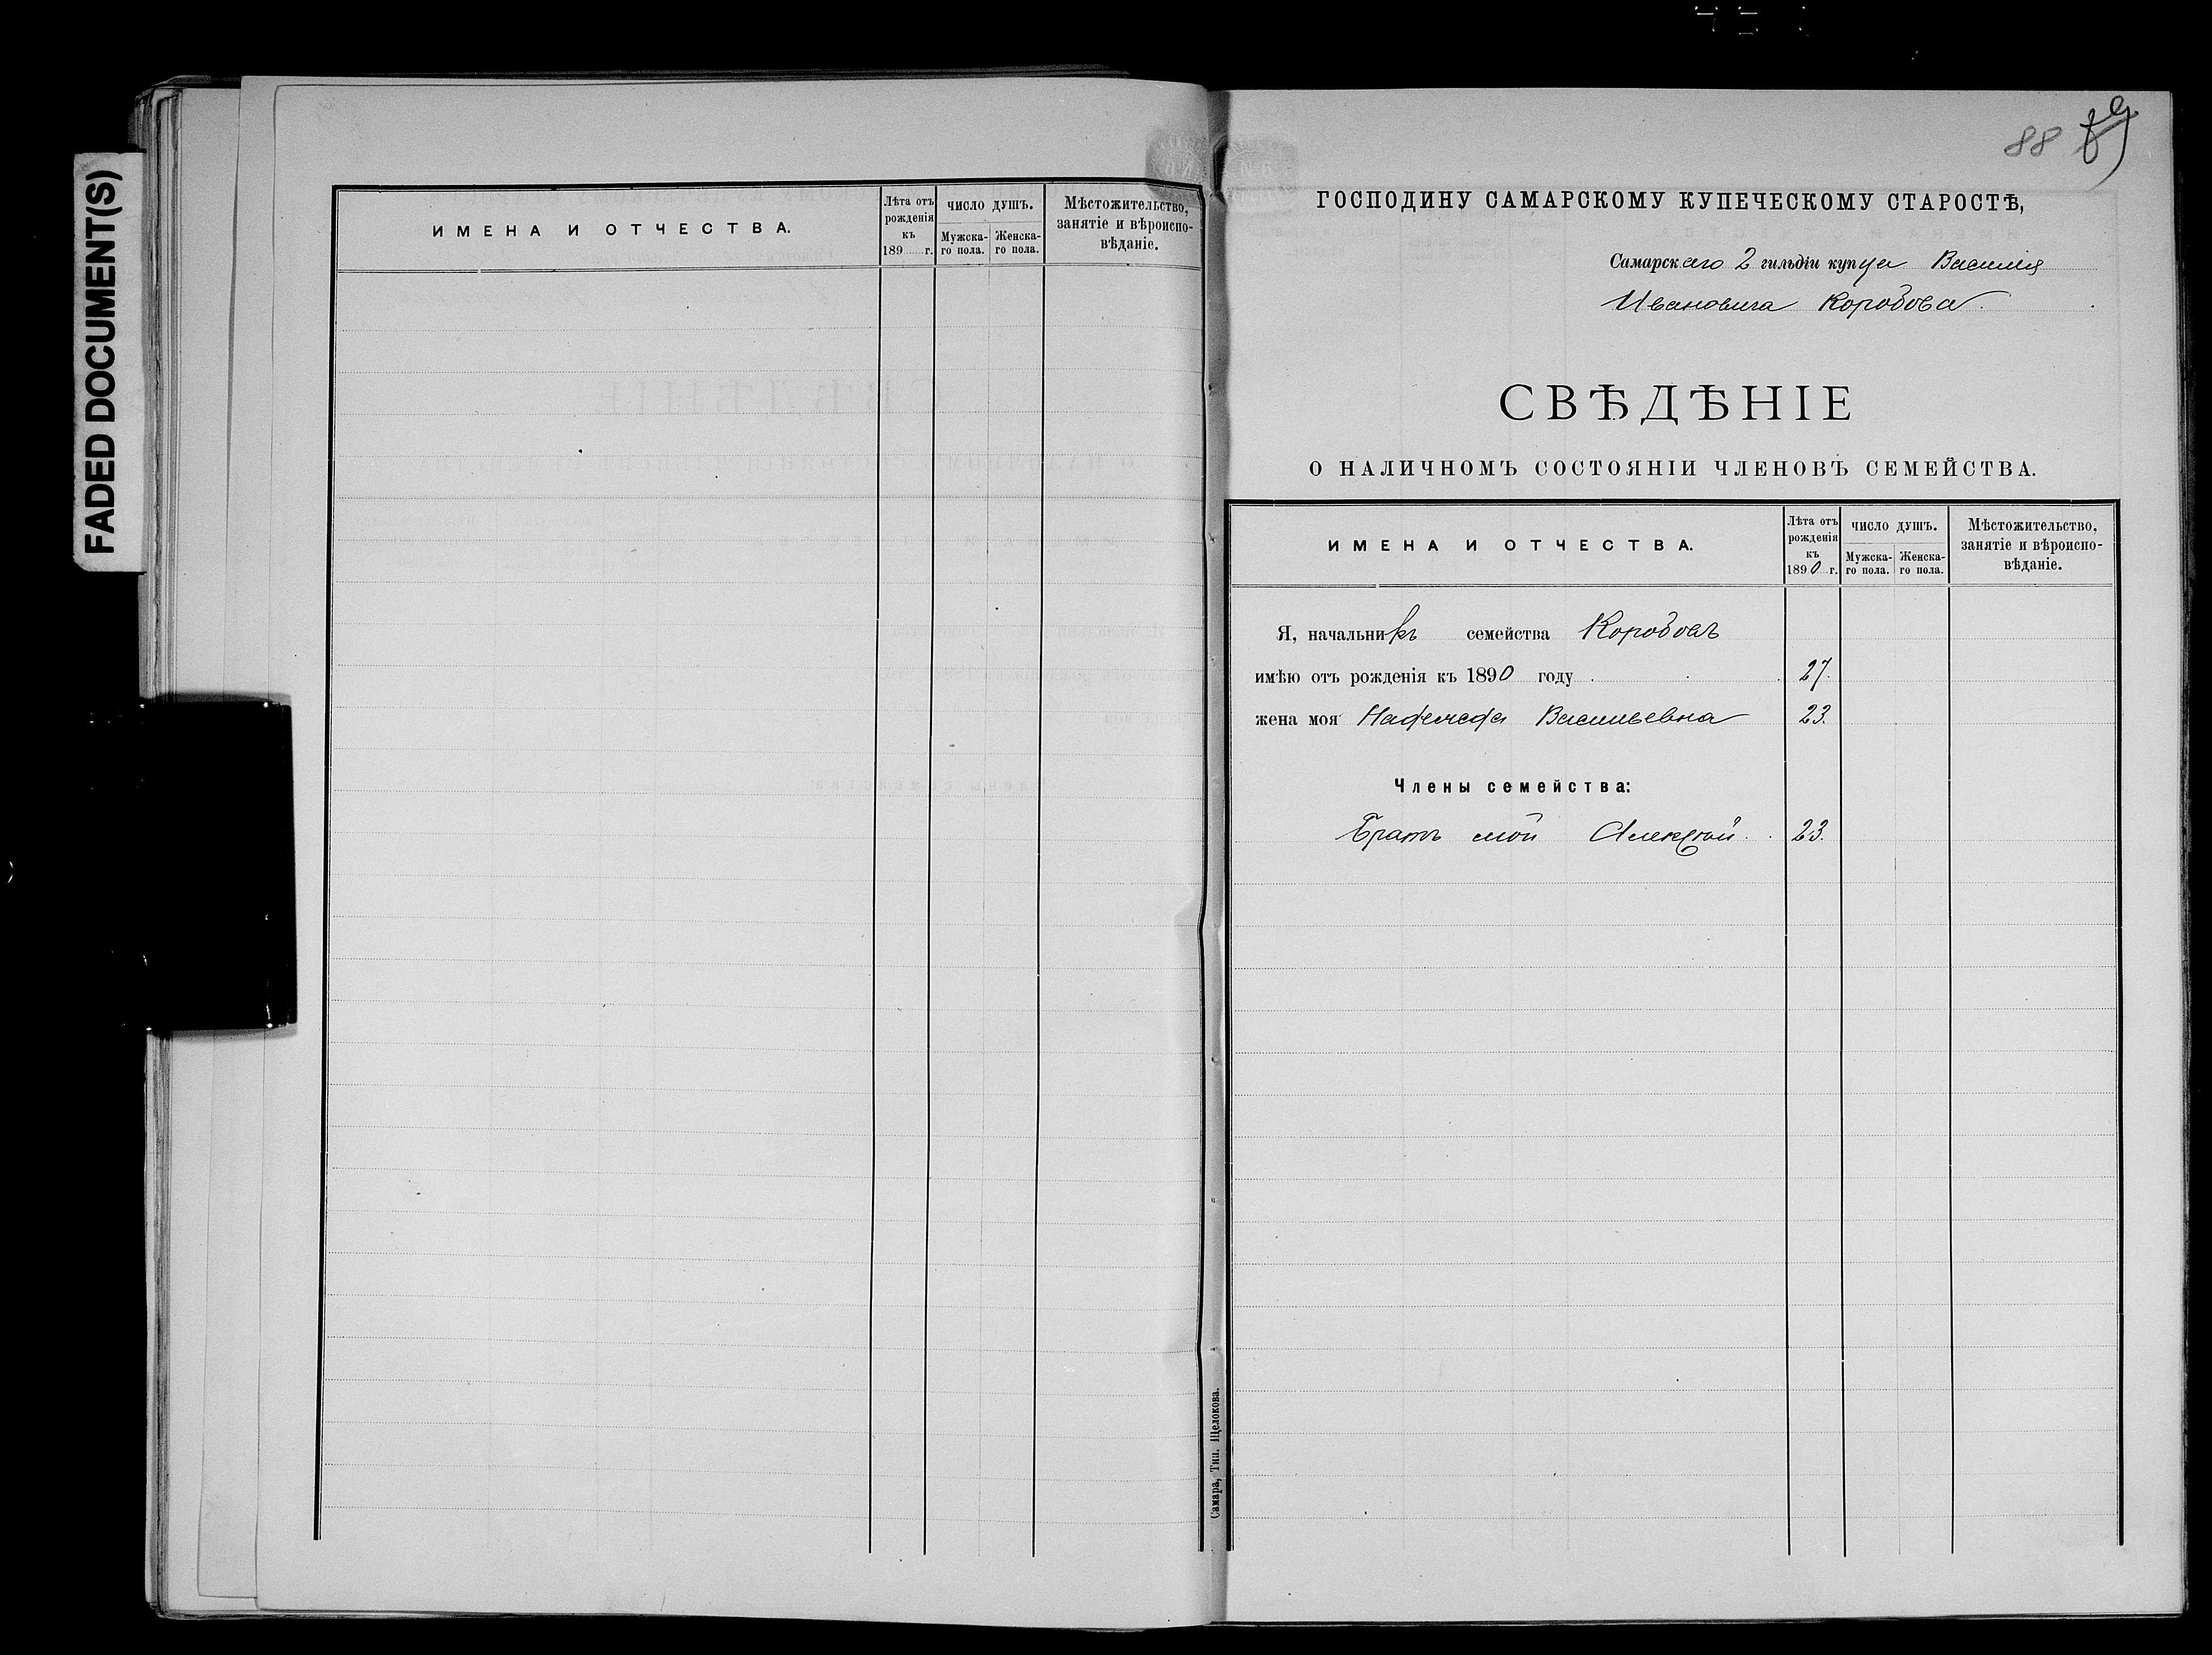 FADED DOCUMENT(S)
ИМЕНА И ОТЧЕСТВА.
Лѣта отъ рожденія къ 189 г.
число душъ.
Мужска-го пола.
Женска-го пола.
Мѣстожительство, занятіе и вѣроиспо-вѣданіе.
88
ГОСПОДИНУ САМАРСКОМУ КУПЕЧЕСКОМУ СТАРОСТѢ,
Самарскаго 2 гильдіи купца Василія
Ивановича Коробова
СВѢДѢНІЕ
О НАЛИЧНОМЪ СОСТОЯНІИ ЧЛЕНОВЪ СЕМЕЙСТВА.
ИМЕНА И ОТЧЕСТВА.
Лѣта отъ рожденія къ 1890 г.
число душъ.
Мужска-го пола.
Женска-го пола.
Мѣстожительство, занятіе и вѣроиспо-вѣданіе.
Я, начальникъ семейства Коробовъ
имѣю отъ рожденія къ 1890 году 27.
жена моя Надежда Васильевна 23.
Члены семейства:
Братъ мой 23.
Самара, Тип. Щелокова.